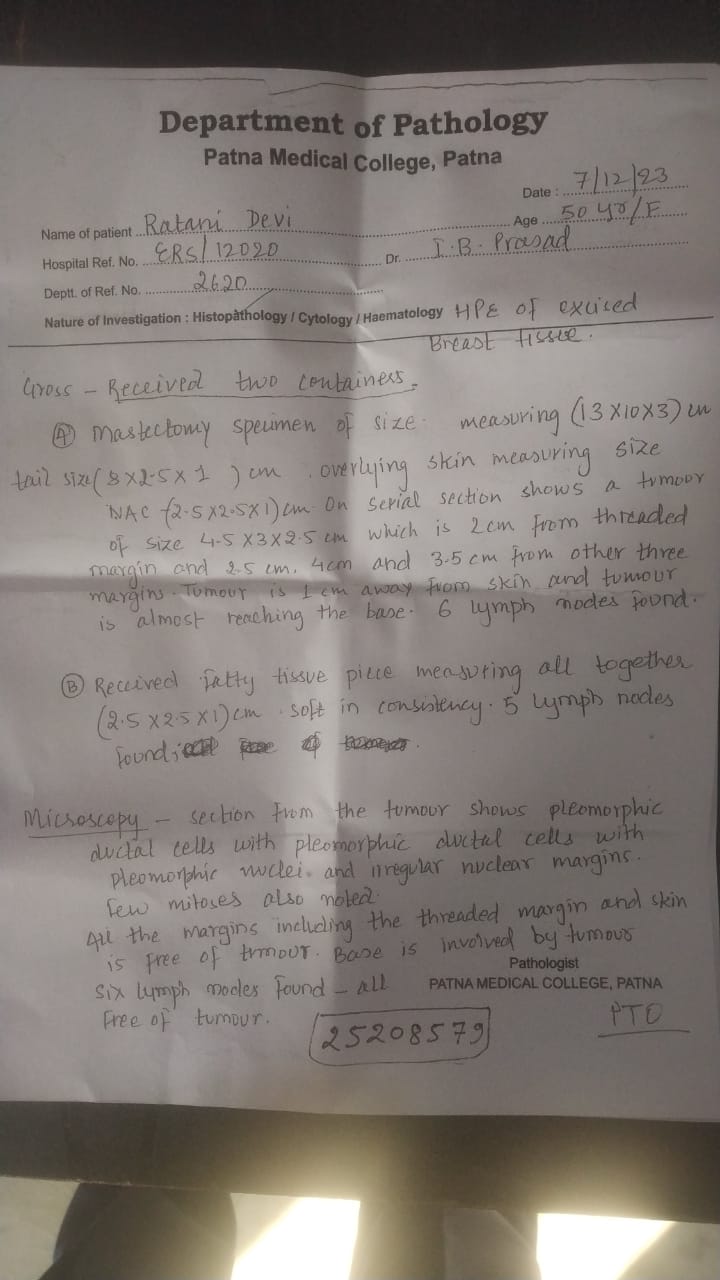 Department of Pathology
Patna Medical College, Patna
Date : 7/12/23
Name of patient Ratani Devi Age 50 yr/F
Hospital Ref. No. ERS/12020 Dr. I.B. Prasad
Deptt. of Ref. No. 2620
Nature of Investigation : Histopathology / Cytology / Haematology HPE of excised
Breast tissue.
Gross - Received two containess.
(A) Mastectomy specimen of size measuring (13 X10 X3) cm
tail size (8 x2.5 x 1 ) cm . overlying skin measuring size
NAC (2.5 X2.5X1) cm. On serial section shows a tumour
of size 4.5 X3 X2.5 cm which is 2cm from threaded
margin and 2.5 cm, 4cm and 3.5 cm from other three
margins. Tumour is 1 cm away from skin and tumour
is almost reaching the base. 6 lymph nodes found.
(B) Received fatty tissue piece measuring all together
(2.5 X2.5 X1) cm . soft in consistency. 5 lymph nodes
found;
Microscopy - section from the tumour shows pleomorphic
ductal cells with pleomorphic ductal cells with
pleomorphic nuclei. and irregular nuclear margins.
few mitoses also noted.
All the margins including the threaded margin and skin
is free of tumour. Base is involved by tumour
Pathologist
PATNA MEDICAL COLLEGE, PATNA
Six lymph nodes found - all
free of tumour.
PTO
25208579